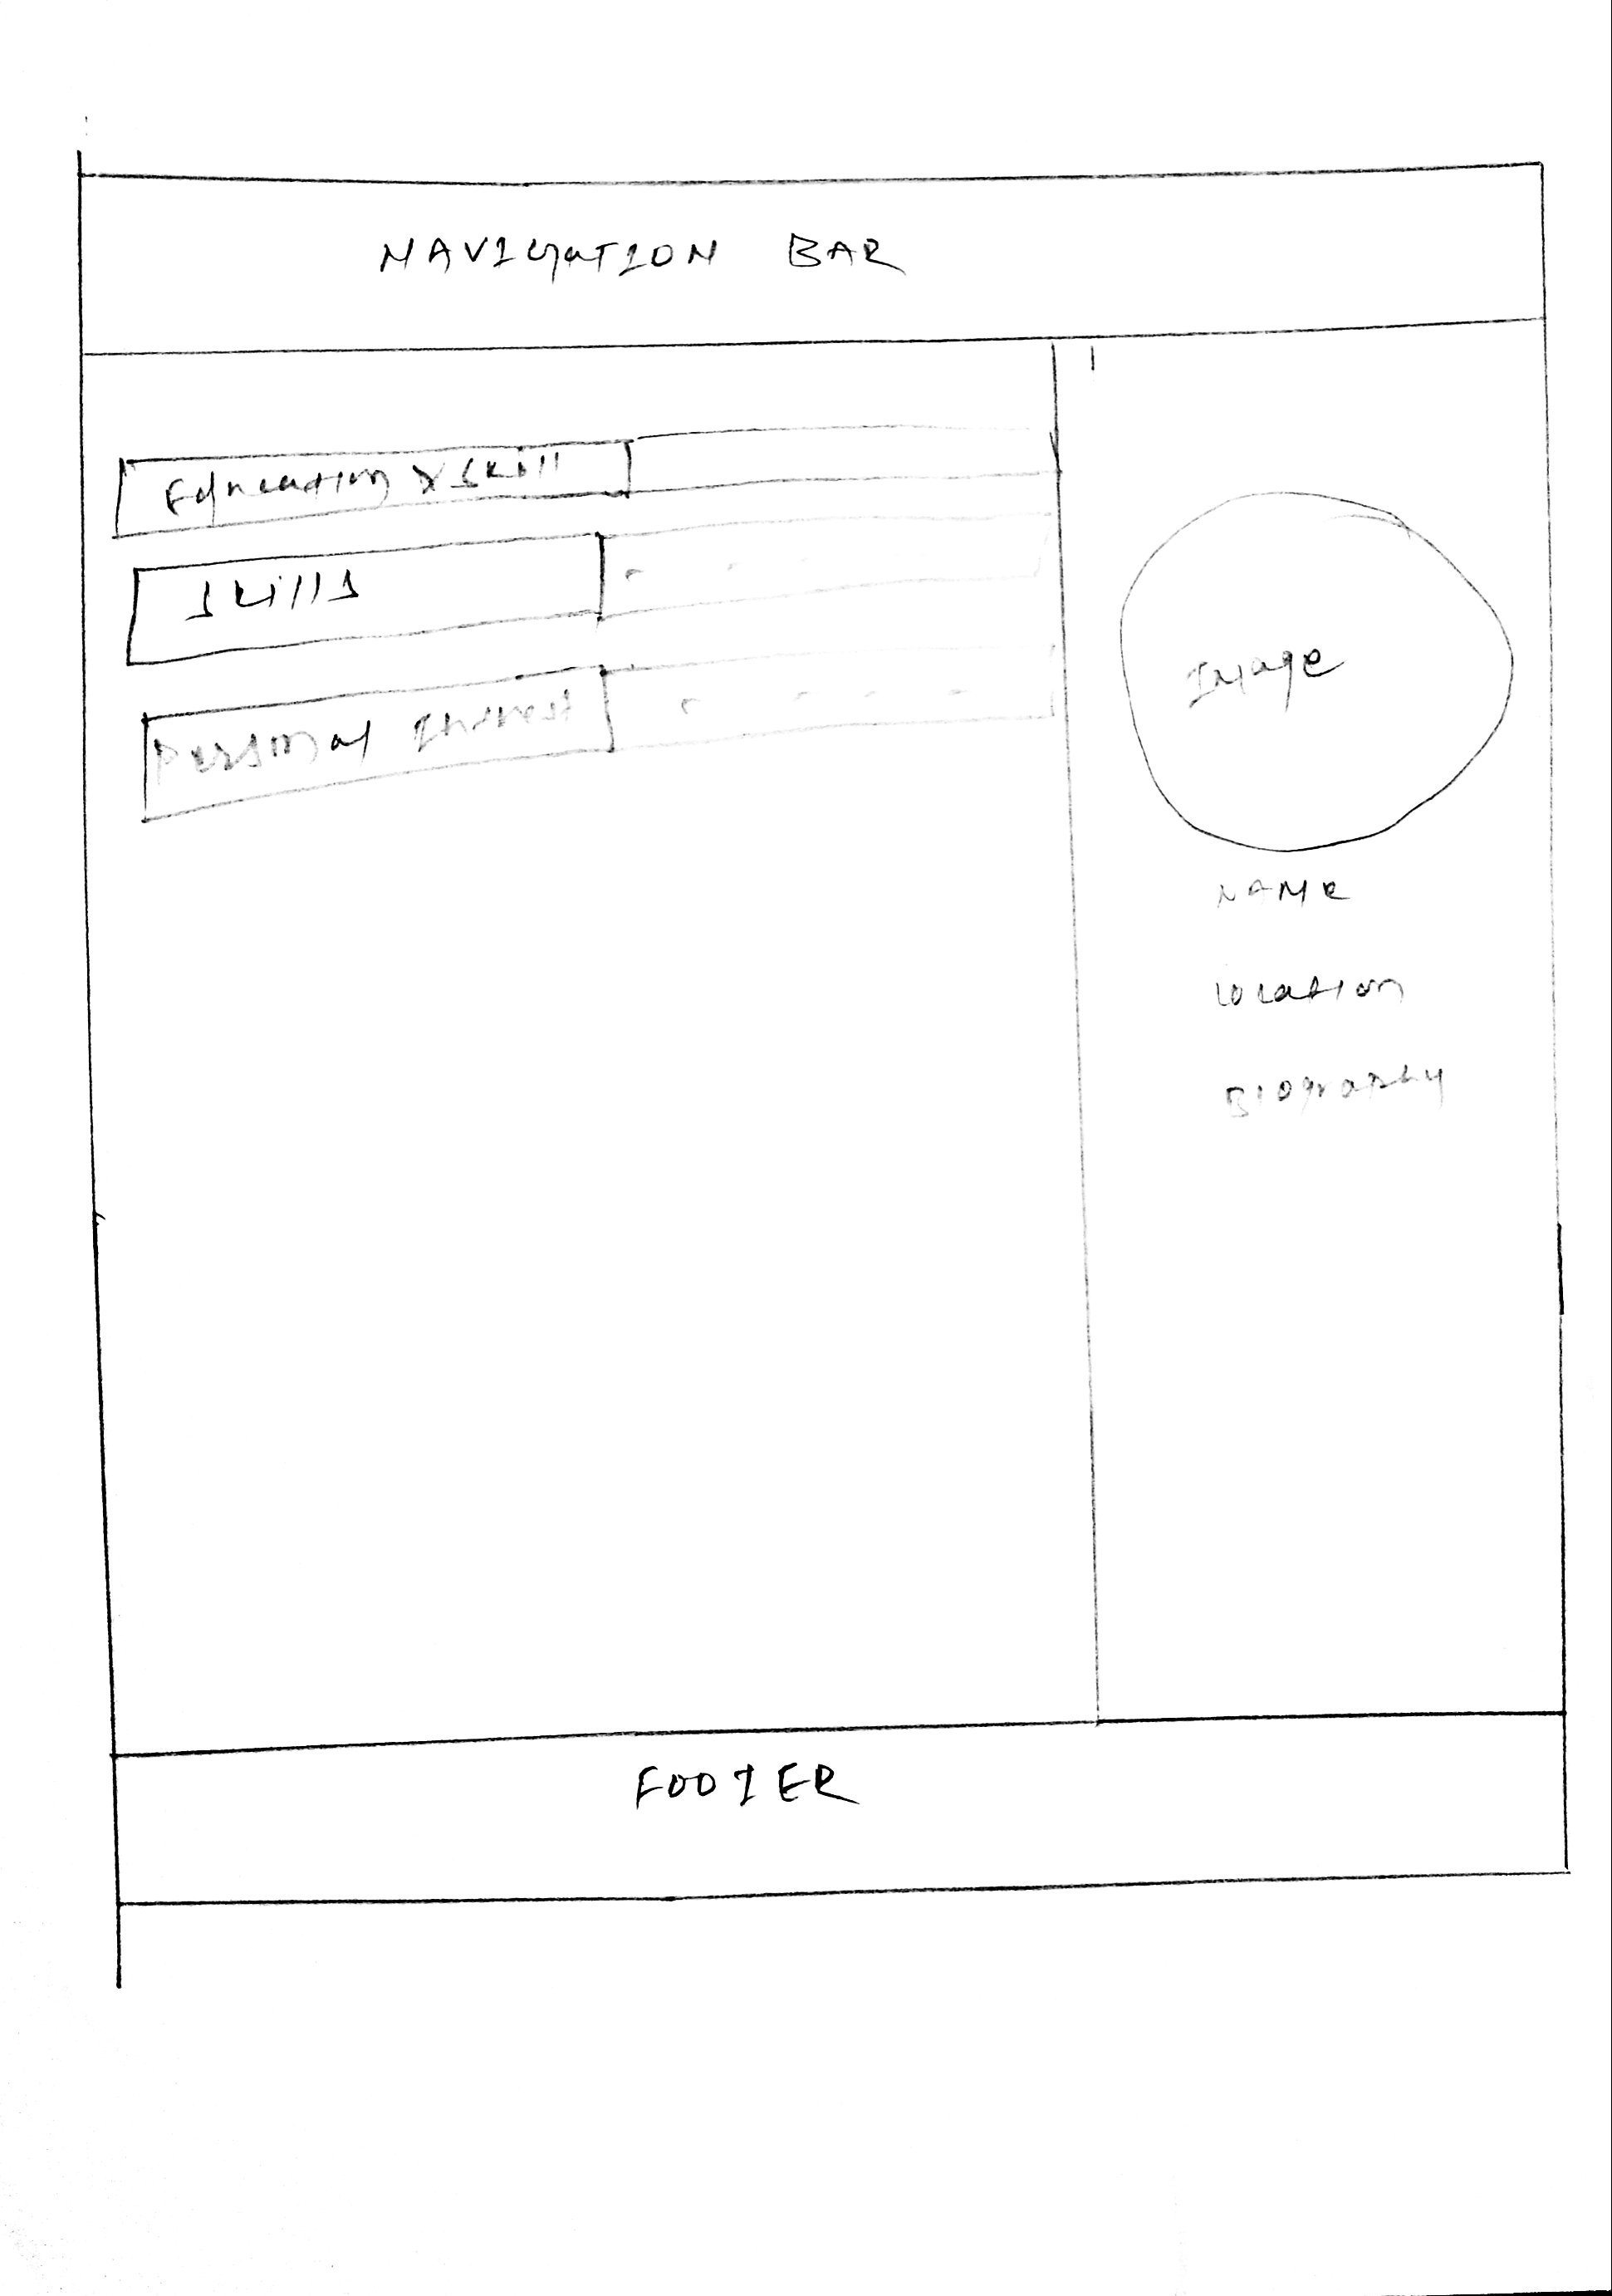 NAVIGATION BAR
Education & Skill
Skills
Personal Interest
Image
NAME
Location
Biography
FOOTER